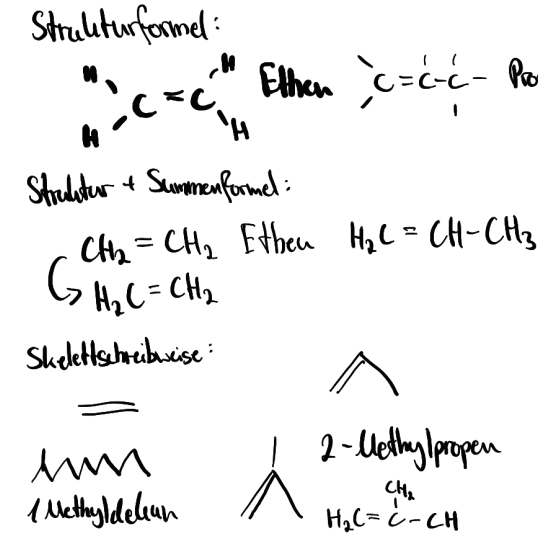 Strukturformel:
H H
C = C Ethen C = C - C - Pro
H H
Struktur + Summenformel:
CH₂ = CH₂ Ethen H₂C = CH - CH₃
H₂C = CH₂
Skelettschreibweise:
2-Methylpropen
1 Methyldekan
CH₂
H₂C = C - CH